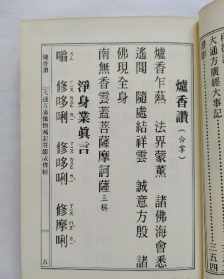 大通方廣經大事記
爐香讚（合掌）
爐香乍爇 法界蒙薰 諸佛海會悉
遙聞 隨處結祥雲 誠意方殷 諸
佛現全身
南無香雲蓋菩薩摩訶薩 三稱
淨身業眞言
修哆唎 修哆唎 修摩唎
爐香讚
五